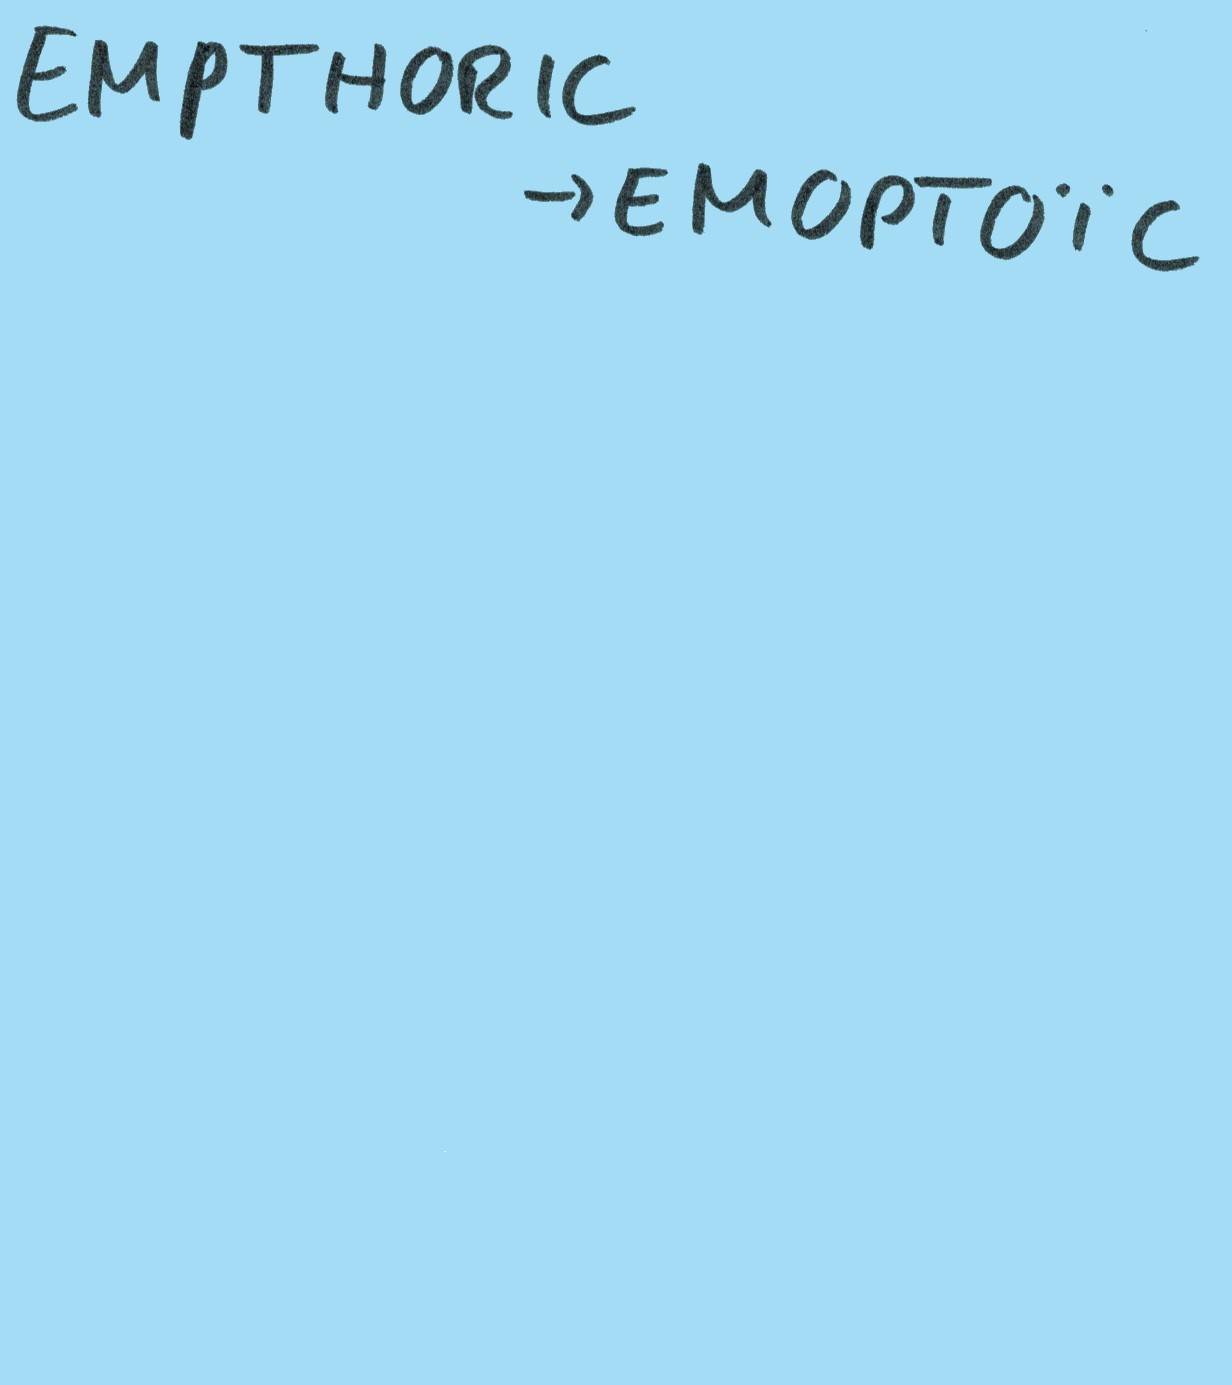 EMPTHORIC
→EMOPTOÏC